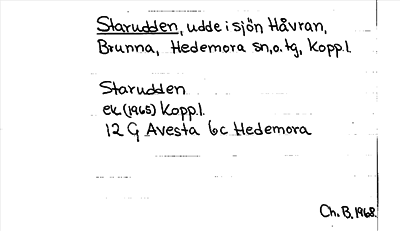 Starudden, udde i sjön Håvran,
Brunna, Hedemora sn, o. tg, Kopp.l.
Starudden
ek. (1965) Kopp.l.
12 G Avesta 6c Hedemora
Ch. B. 1968.